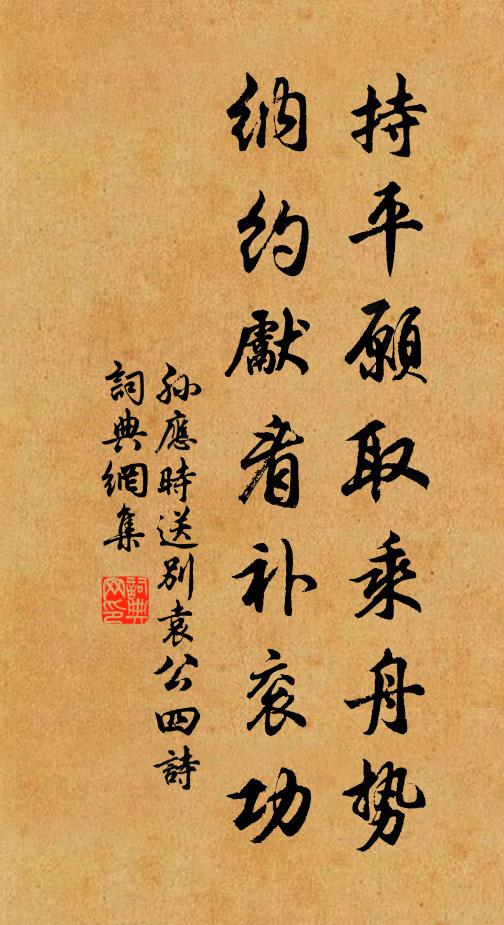 持平願取乘舟勢
納約獻看补衮功
孫應時送別袁公四詩
詞典網集
詞典网印